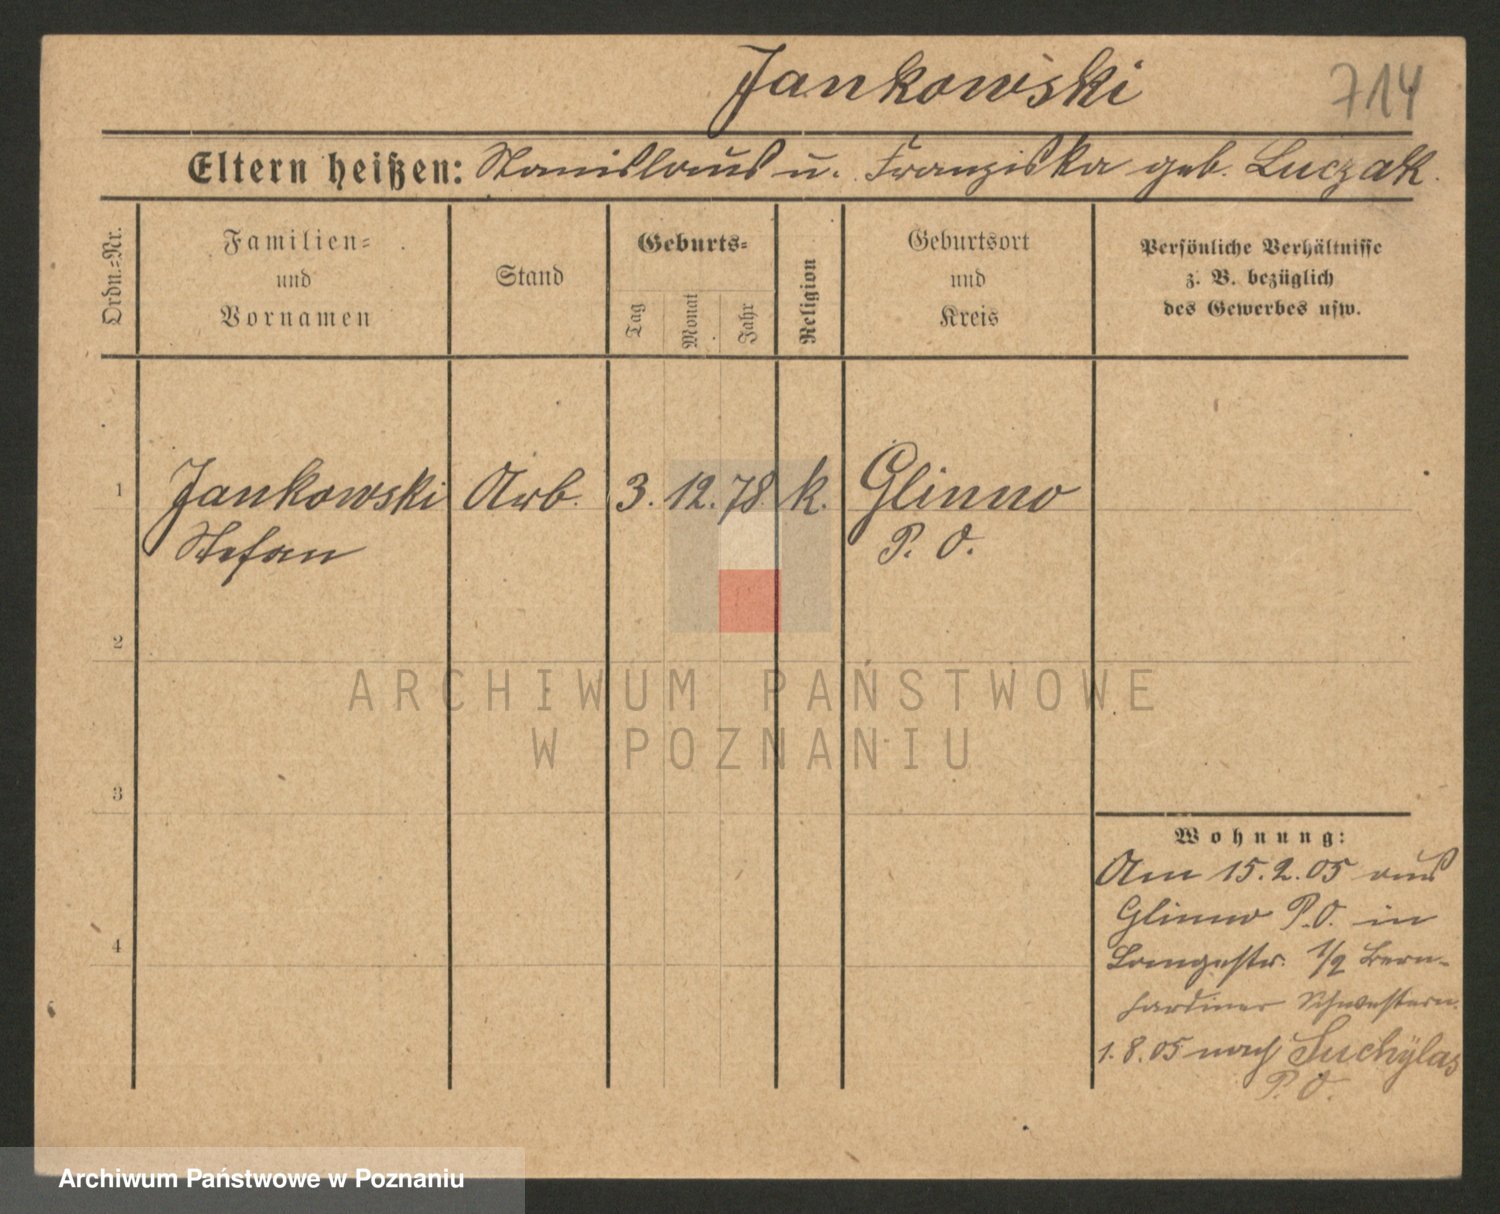 Jankowski
714
Eltern heißen: Stanislaus u. Franziska geb. Luczak.
Ordn.=Nr.
Familien=
und
Vornamen
Stand
Geburts=
Tag
Monat
Jahr
Religion
Geburtsort
und
Kreis
Persönliche Verhältnisse
z. B. bezüglich
des Gewerbes usw.
1
Jankowski Arb. 3. 12. 78. k. Glinno
Stefan P. O.
2
ARCHIWUM PAŃSTWOWE
W POZNANIU
3
Wohnung:
Am 15.2.05 aus
Glinno P.O. in
Langestr. 1/2 Bern-
hardiner Schwestern.
4
1.8.05 nach Suchylas
P. O.
Archiwum Państwowe w Poznaniu